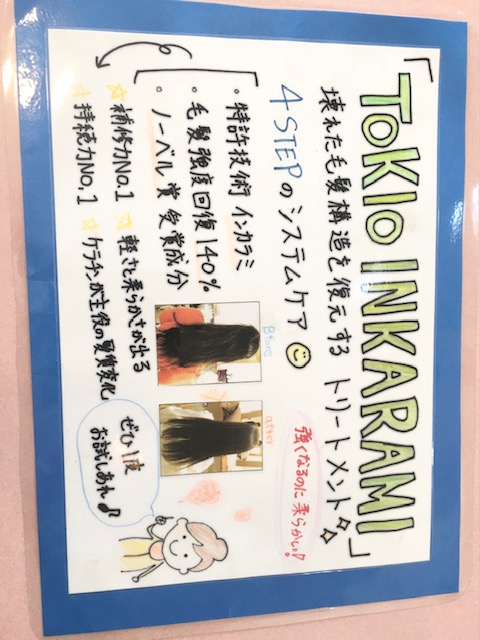 「TOKIO INKARAMI」
壊れた毛髪構造を復元する トリートメント
4 STEPのシステムケア
強くなるのに柔らかい!
・特許技術 インカラミ
・毛髪強度回復 140%
・ノーベル賞 受賞成分
Before
after
補修力No.1
軽さと柔らかさが出る
持続力No.1
ケラチンが主役の髪質変化
ぜひ1度
お試しあれ♪